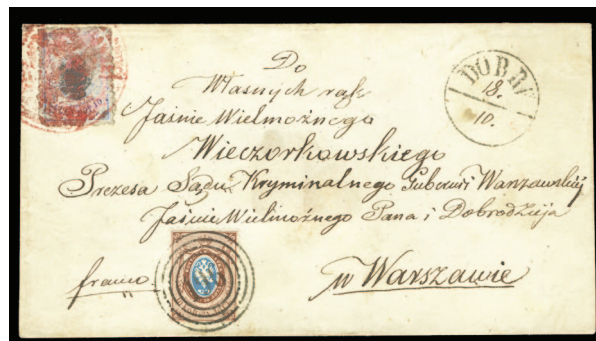 Do
Własnych rąk
Jaśnie Wielmożnego
Wieczorkowskiego
Prezesa Sądu Kryminalnego Gubernii Warszawskiej
Jaśnie Wielmożnego Pana i Dobrodzieja
w Warszawie
franco
18.
10.